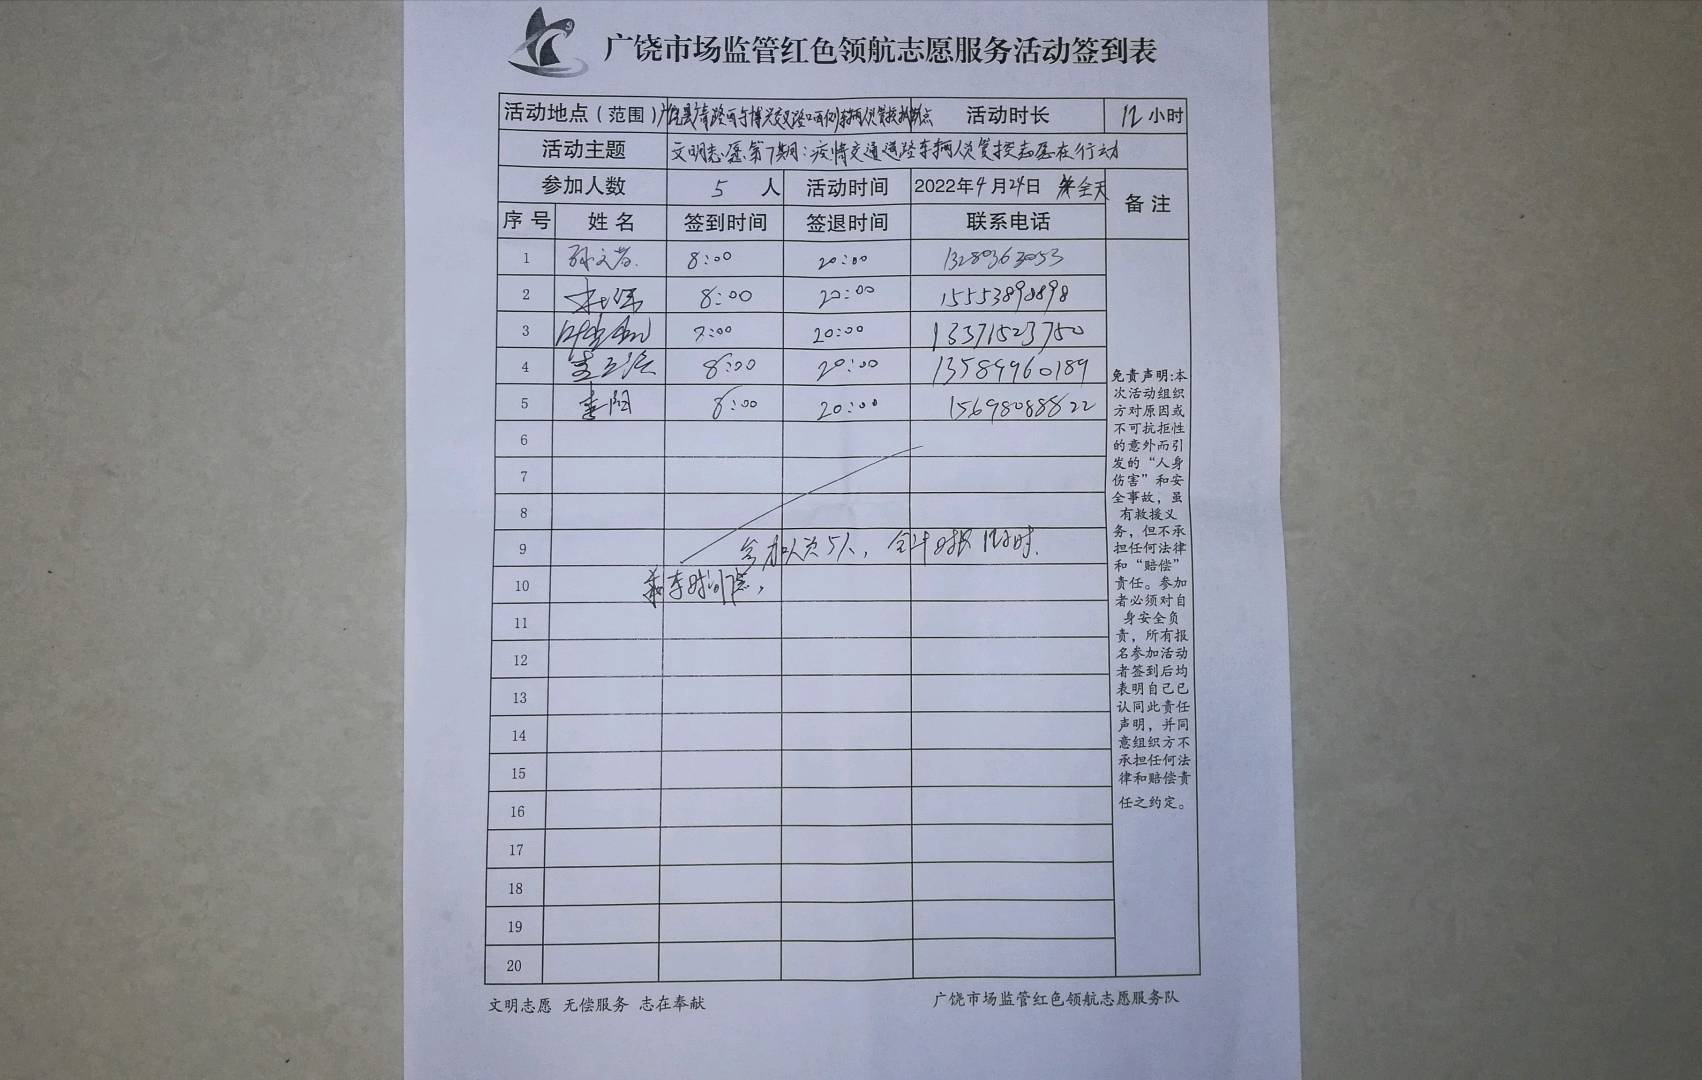 广饶市场监管红色领航志愿服务活动签到表
活动地点（范围） 活动时长 12 小时
活动主题 文明志愿第7期：疫情交通道路车辆人员管控志愿在行动
参加人数 5 人 活动时间 2022年4月24日 全天 备注
序号 姓名 签到时间 签退时间 联系电话
1 8:00 20:00 13280363053
2 8:00 20:00 15553898898
3 20:00 13371523750
4 8:00 20:00 13589960189
5 李阳 8:00 20:00 15698088822
6
7
8
9 参加人员5人，合计时长12小时.
10
11
12
13
14
15
16
17
18
19
20
免责声明:本
次活动组织
方对原因或
不可抗拒性
的意外而引
发的“人身
伤害”和安
全事故，虽
有救援义
务，但不承
担任何法律
和“赔偿”
责任。参加
者必须对自
身安全负
责，所有报
名参加活动
者签到后均
表明自己已
认同此责任
声明，并同
意组织方不
承担任何法
律和赔偿责
任之约定。
文明志愿 无偿服务 志在奉献
广饶市场监管红色领航志愿服务队